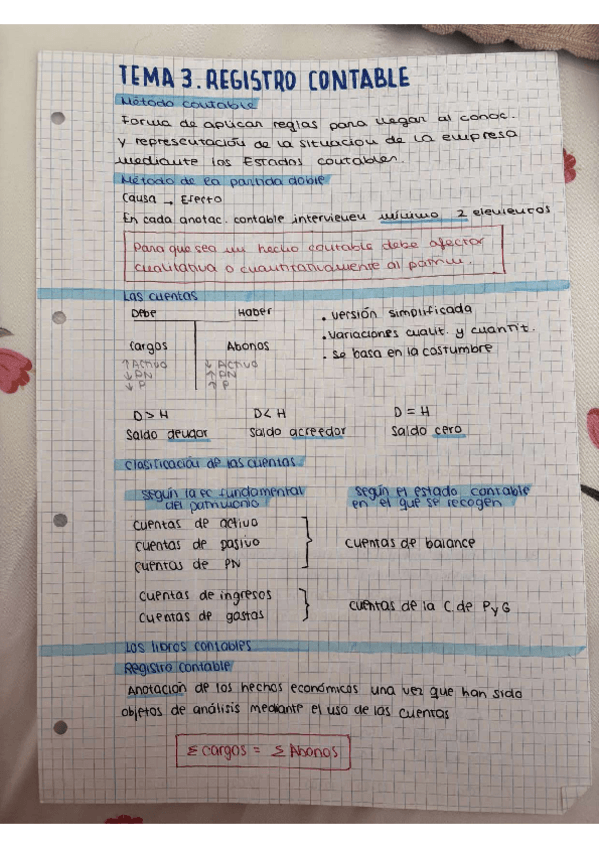 TEMA 3. REGISTRO CONTABLE
Método contable
Forma de aplicar reglas para llegar al conoc.
y representación de la situacion de la empresa
mediante los Estados contables.
Método de la partida doble
Causa → Efecto
En cada anotac. contable intervienen mínimo 2 elementos
Para que sea un hecho contable debe afectar
cualitativa o cuantitativamente al patrim.
Las cuentas
Debe Haber
Cargos Abonos
↑ Activo ↓ Activo
↓ PN ↑ PN
↓ P ↑ P
• versión simplificada
• variaciones cualit. y cuantit.
• se basa en la costumbre
D > H D < H D = H
Saldo deudor Saldo acreedor Saldo cero
Clasificación de las cuentas
Según la ec fundamental
del patrimonio
Según el estado contable
en el que se recogen
cuentas de activo
cuentas de pasivo
cuentas de PN
cuentas de balance
cuentas de ingresos
cuentas de gastos
cuentas de la C. de P y G
Los libros contables
Registro contable
Anotación de los hechos económicos una vez que han sido
objetos de análisis mediante el uso de las cuentas
Σ cargos = Σ Abonos